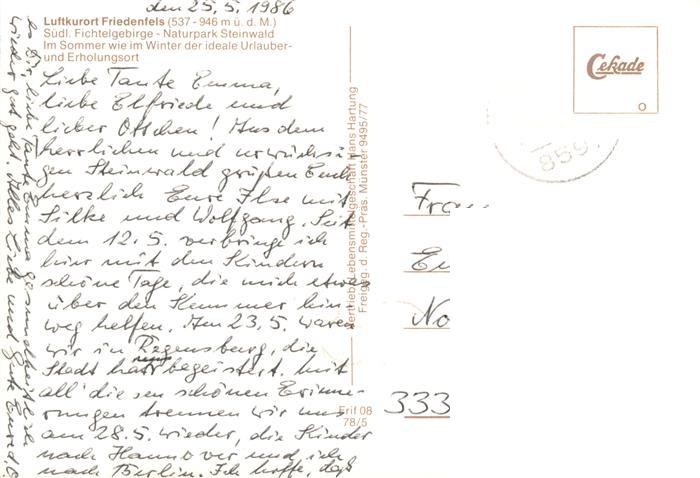 den 25.5.1986
Luftkurort Friedenfels (537 - 946 m ü. d. M.)
Südl. Fichtelgebirge - Naturpark Steinwald
Im Sommer wie im Winter der ideale Urlauber-
und Erholungsort
Liebe Tante Emma,
liebe Elfriede und
lieber Ottchen! Aus dem
herrlichen und urwüchsi-
gen Steinwald grüßen Euch
herzlich Eure Ilse mit
Silke und Wolfgang. Seit
dem 12.5. verbringe ich
hier mit den Kindern
schöne Tage, die mich etwas
über den Kummer hin-
weg helfen. Am 23.5. waren
wir in Regensburg, die
Stadt hat uns begeistert. Mit
all' diesen schönen Erinne-
rungen trennen wir uns
am 28.5. wieder, die Kinder
nach Hannover und ich
nach Berlin. Ich hoffe, daß
es Dir, liebe Tante Emma gesundheitlich
wieder gut geht. Alles Liebe und Gute Eure
Vertrieb: Lebensmittelgeschäft Hans Hartung
Freigeg. d. Reg.-Präs. Münster 9495/77
Frif 08
78/5
Cekade
859
Fra
Em
No
333